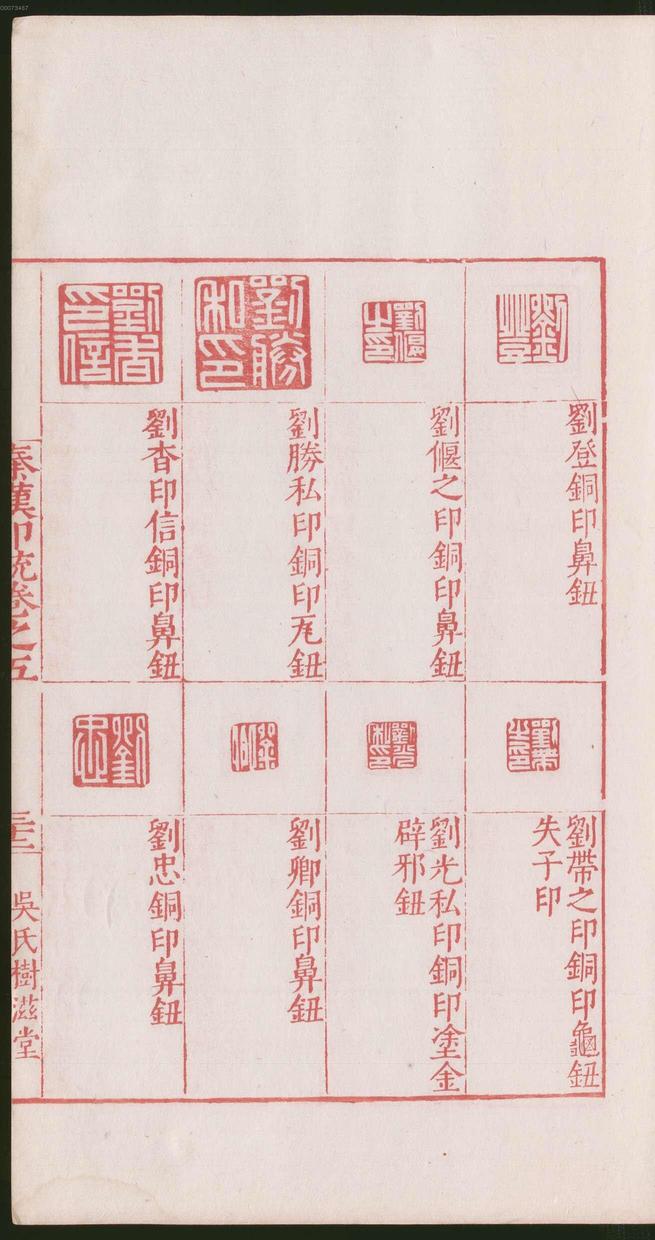 00073467
劉登銅印鼻鈕
劉偃之印銅印鼻鈕
劉勝私印銅印瓦鈕
劉杳印信銅印鼻鈕
劉帶之印銅印龜鈕
失子印
劉光私印銅印塗金
辟邪鈕
劉卿銅印鼻鈕
劉忠銅印鼻鈕
秦漢印統卷之五
吳氏樹滋堂